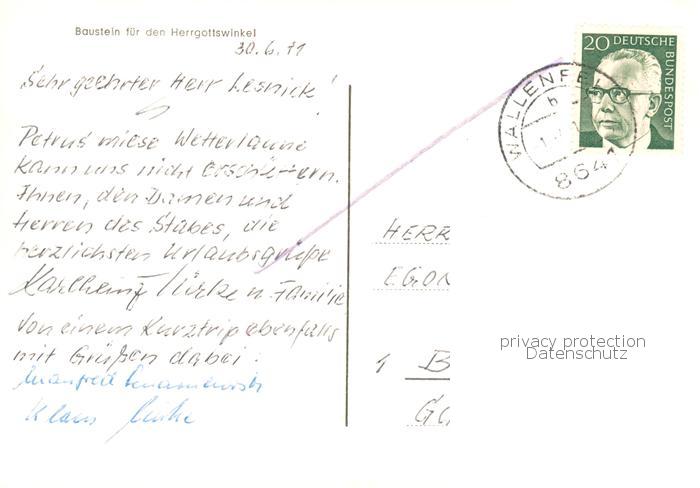 Baustein für den Herrgottswinkel
30.6.71
Sehr geehrter Herr Lesnick!
Petrus miese Wetterlaune
kann uns nicht erschüttern.
Ihnen, den Damen und
Herren des Stabes, die
herzlichsten Urlaubsgrüße
Karlheinz u. Familie
Von einem Kurztrip ebenfalls
mit Grüßen dabei:
Manfred
Klaus
20 DEUTSCHE
BUNDESPOST
WALLENFEL
864
HERR
EGON
1 B
privacy protection
Datenschutz